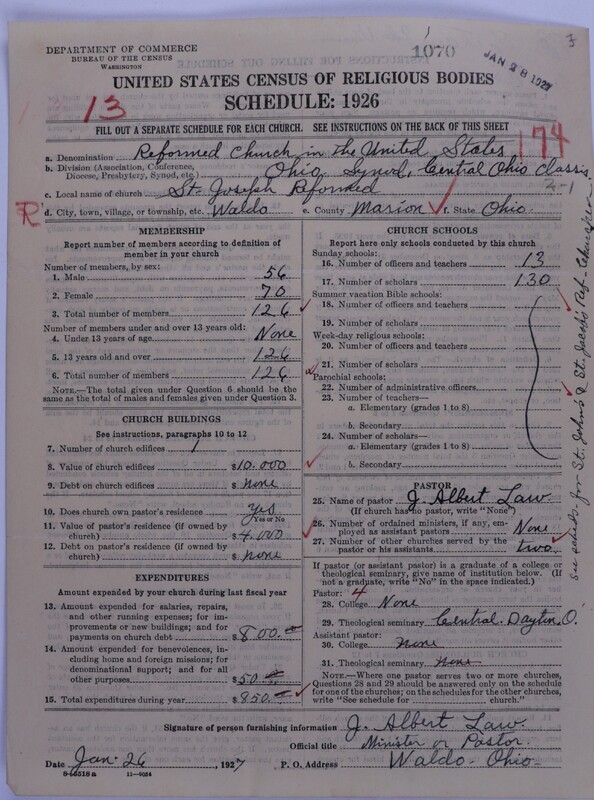 1070
JAN 28 1927
DEPARTMENT OF COMMERCE
BUREAU OF THE CENSUS
WASHINGTON
UNITED STATES CENSUS OF RELIGIOUS BODIES
SCHEDULE: 1926
13
174
FILL OUT A SEPARATE SCHEDULE FOR EACH CHURCH. SEE INSTRUCTIONS ON THE BACK OF THIS SHEET
a. Denomination Reformed Church in the United States
b. Division (Association, Conference, Diocese, Presbytery, Synod, etc.) Ohio Synod, Central Ohio Classis
2-1
c. Local name of church St. Joseph Reformed
R
d. City, town, village, or township, etc. Waldo e. County Marion f. State Ohio
MEMBERSHIP
Report number of members according to definition of
member in your church
Number of members, by sex:
1. Male 56
2. Female 70
3. Total number of members 126
Number of members under and over 13 years old:
4. Under 13 years of age None
5. 13 years old and over 126
6. Total number of members 126
NOTE.—The total given under Question 6 should be the
same as the total of males and females given under Question 3.
CHURCH BUILDINGS
See instructions, paragraphs 10 to 12
7. Number of church edifices 1
8. Value of church edifices $10.000
9. Debt on church edifices $ None
10. Does church own pastor's residence? yes
Yes or No
11. Value of pastor's residence (if owned by
church) $4.000
12. Debt on pastor's residence (if owned by
church) $ none
EXPENDITURES
Amount expended by your church during last fiscal year
13. Amount expended for salaries, repairs,
and other running expenses; for im-
provements or new buildings; and for
payments on church debt $800.
14. Amount expended for benevolences,
including home and foreign missions; for
denominational support; and for all
other purposes $50.
15. Total expenditures during year $850.
CHURCH SCHOOLS
Report here only schools conducted by this church
Sunday schools:
16. Number of officers and teachers 13
17. Number of scholars 130
Summer vacation Bible schools:
18. Number of officers and teachers
19. Number of scholars
Week-day religious schools:
20. Number of officers and teachers
21. Number of scholars
Parochial schools:
22. Number of administrative officers
23. Number of teachers—
a. Elementary (grades 1 to 8)
b. Secondary
24. Number of scholars—
a. Elementary (grades 1 to 8)
b. Secondary
PASTOR
25. Name of pastor J. Albert Law
(If church has no pastor, write "None")
26. Number of ordained ministers, if any, em-
ployed as assistant pastors None
27. Number of other churches served by the
pastor or his assistants two
If pastor (or assistant pastor) is a graduate of a college or
theological seminary, give name of institution below. (If
not a graduate, write "No" in the space indicated.)
Pastor: 4
28. College None
29. Theological seminary Central. Dayton, O.
Assistant pastor:
30. College none
31. Theological seminary none
NOTE.—Where one pastor serves two or more churches,
Questions 28 and 29 should be answered only on the schedule
for one of the churches; on the schedules for the other churches,
write "See schedule for church."
See scheds. for St. John's & St. Jacob's Ref.
Signature of person furnishing information J. Albert Law
Official title Minister or Pastor.
Date Jan. 26, 1927 P. O. Address Waldo - Ohio
8-5518a 11-9024